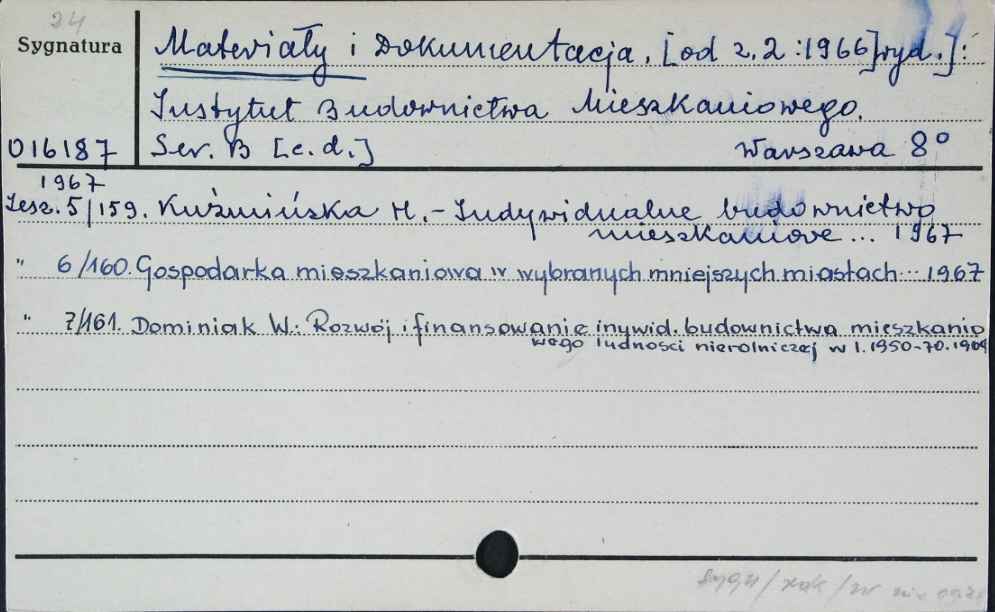 24
Sygnatura
Materiały i Dokumentacja. [od z. 2 : 1966] wyd.]:
Instytut Budownictwa Mieszkaniowego.
016187 Ser. B [c. d.] Warszawa 8°
1967
Zesz. 5/159. Kuźmińska H. - Indywidualne budownictwo
mieszkaniowe ... 1967
" 6/160. Gospodarka mieszkaniowa w wybranych mniejszych miastach ... 1967
" 7/161. Dominiak W.: Rozwój i finansowanie inywid. budownictwa mieszkanio
wego ludności nierolniczej w l. 1950-70. 1969